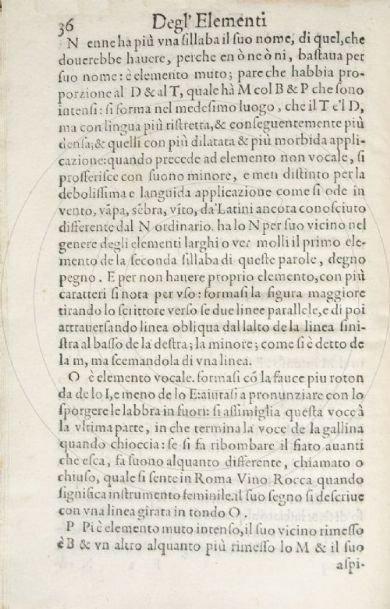 36 Degl' Elementi
N enne ha più vna sillaba il suo nome, di quel, che
douerebbe hauere, perche en ò ne ò ni, bastaua per
suo nome: è elemento muto; pare che habbia pro-
porzione al D & al T, quale hà M col B & P che sono
intensi: si forma nel medesimo luogo, che il T e'l D,
ma con lingua più ristretta, & conseguentemente più
densa; & quelli con più dilatata & più morbida appli-
cazione: quando precede ad elemento non vocale, si
profferisce con suono minore, e men distinto per la
debolissima e languida applicazione come si ode in
vento, vãpa, sẽbra, vĩto, da' Latini ancora conosciuto
differente dal N ordinario. ha lo N per suo vicino nel
genere degli elementi larghi o ver molli il primo ele-
mento de la seconda sillaba di queste parole, degno
pegno. E per non hauere proprio elemento, con più
caratteri si nota per vso: formasi la figura maggiore
tirando lo scrittore verso se due linee parallele, e di poi
attrauersando linea obliqua dal lalto de la linea sini-
stra al basso de la destra; la minore; come si è detto de
la m, ma scemandola di vna linea.
O è elemento vocale. formasi cõ la fauce piu roton
da de lo I, e meno de lo E: aiutasi a pronunziare con lo
sporgere le labbra in fuori: si assimiglia questa voce à
la vltima parte, in che termina la voce de la gallina
quando chioccia: se si fa ribombare il fiato auanti
che esca, fa suono alquanto differente, chiamato o
chiuso, quale si sente in Roma Vino Rocca quando
significa instrumento feminile. il suo segno si descriue
con vna linea girata in tondo O.
P Pi è elemento muto intenso, il suo vicino rimesso
è B & vn altro alquanto più rimesso lo M & il suo
aspi-